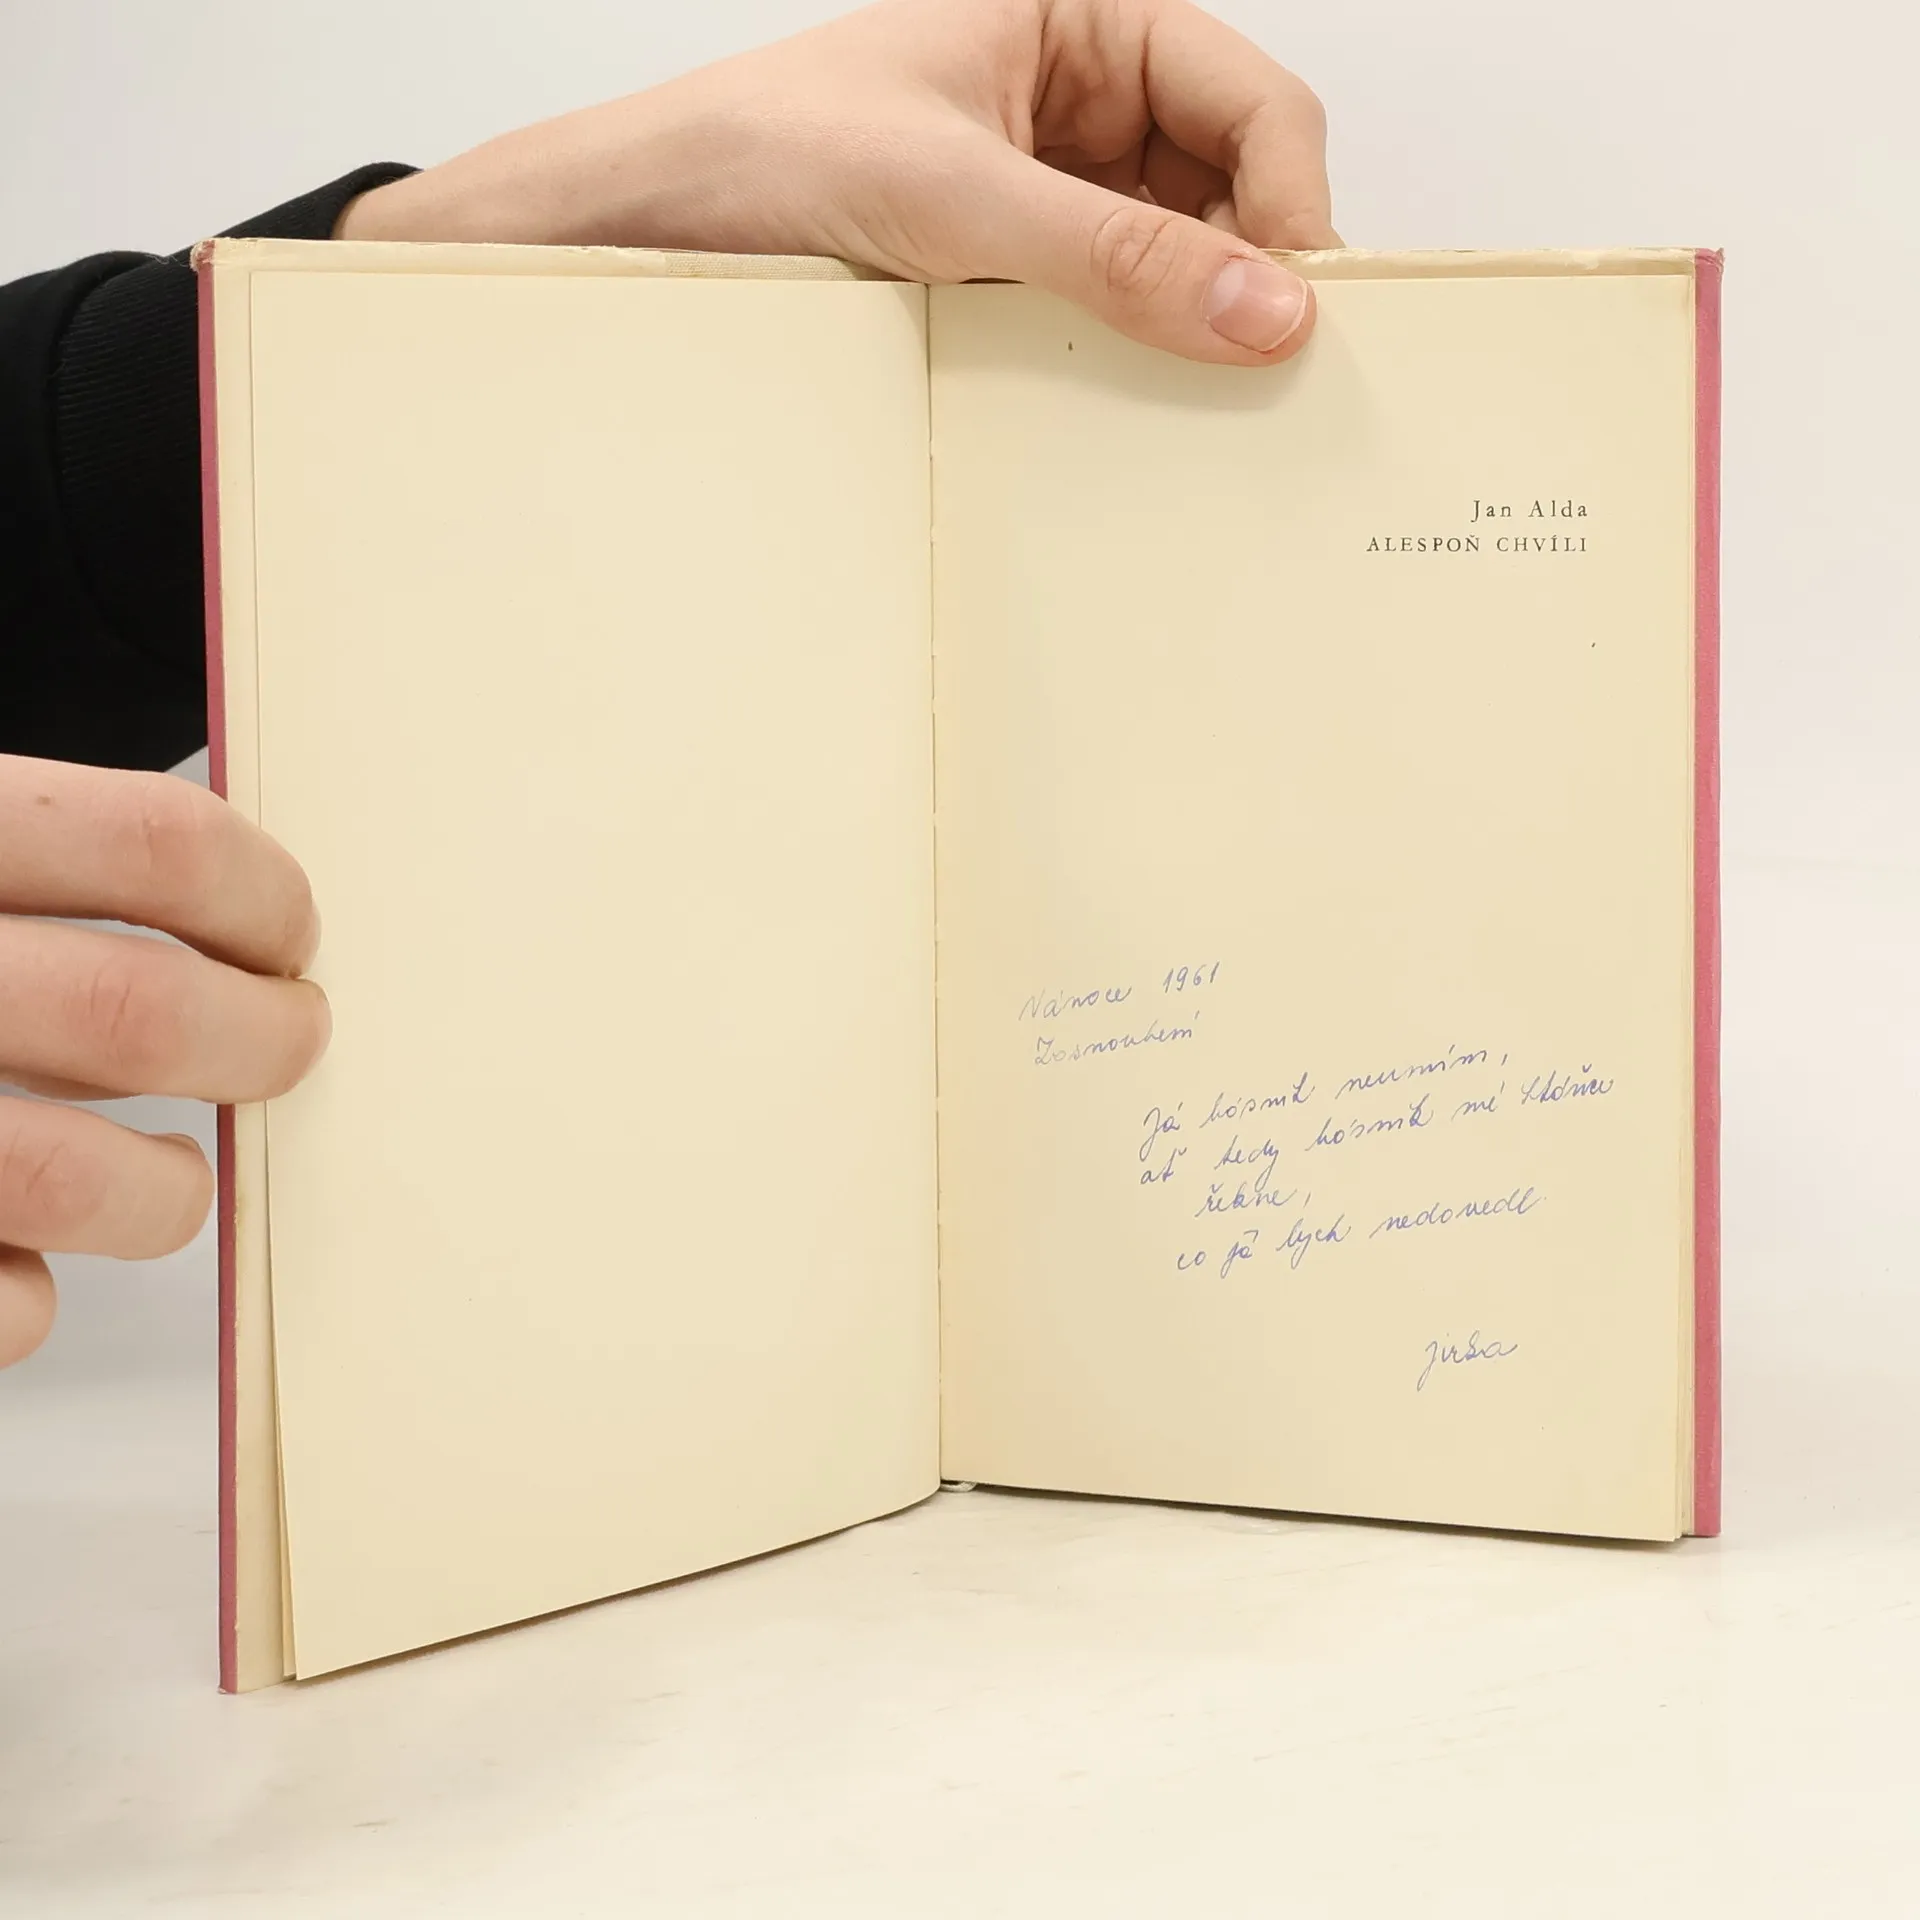 Jan Alda
ALESPOŇ CHVÍLI
Vánoce 1961
Zasnoubení
Já básnit neumím,
ať tedy básník mé
řekne,
co já bych nedovedl
Jirka